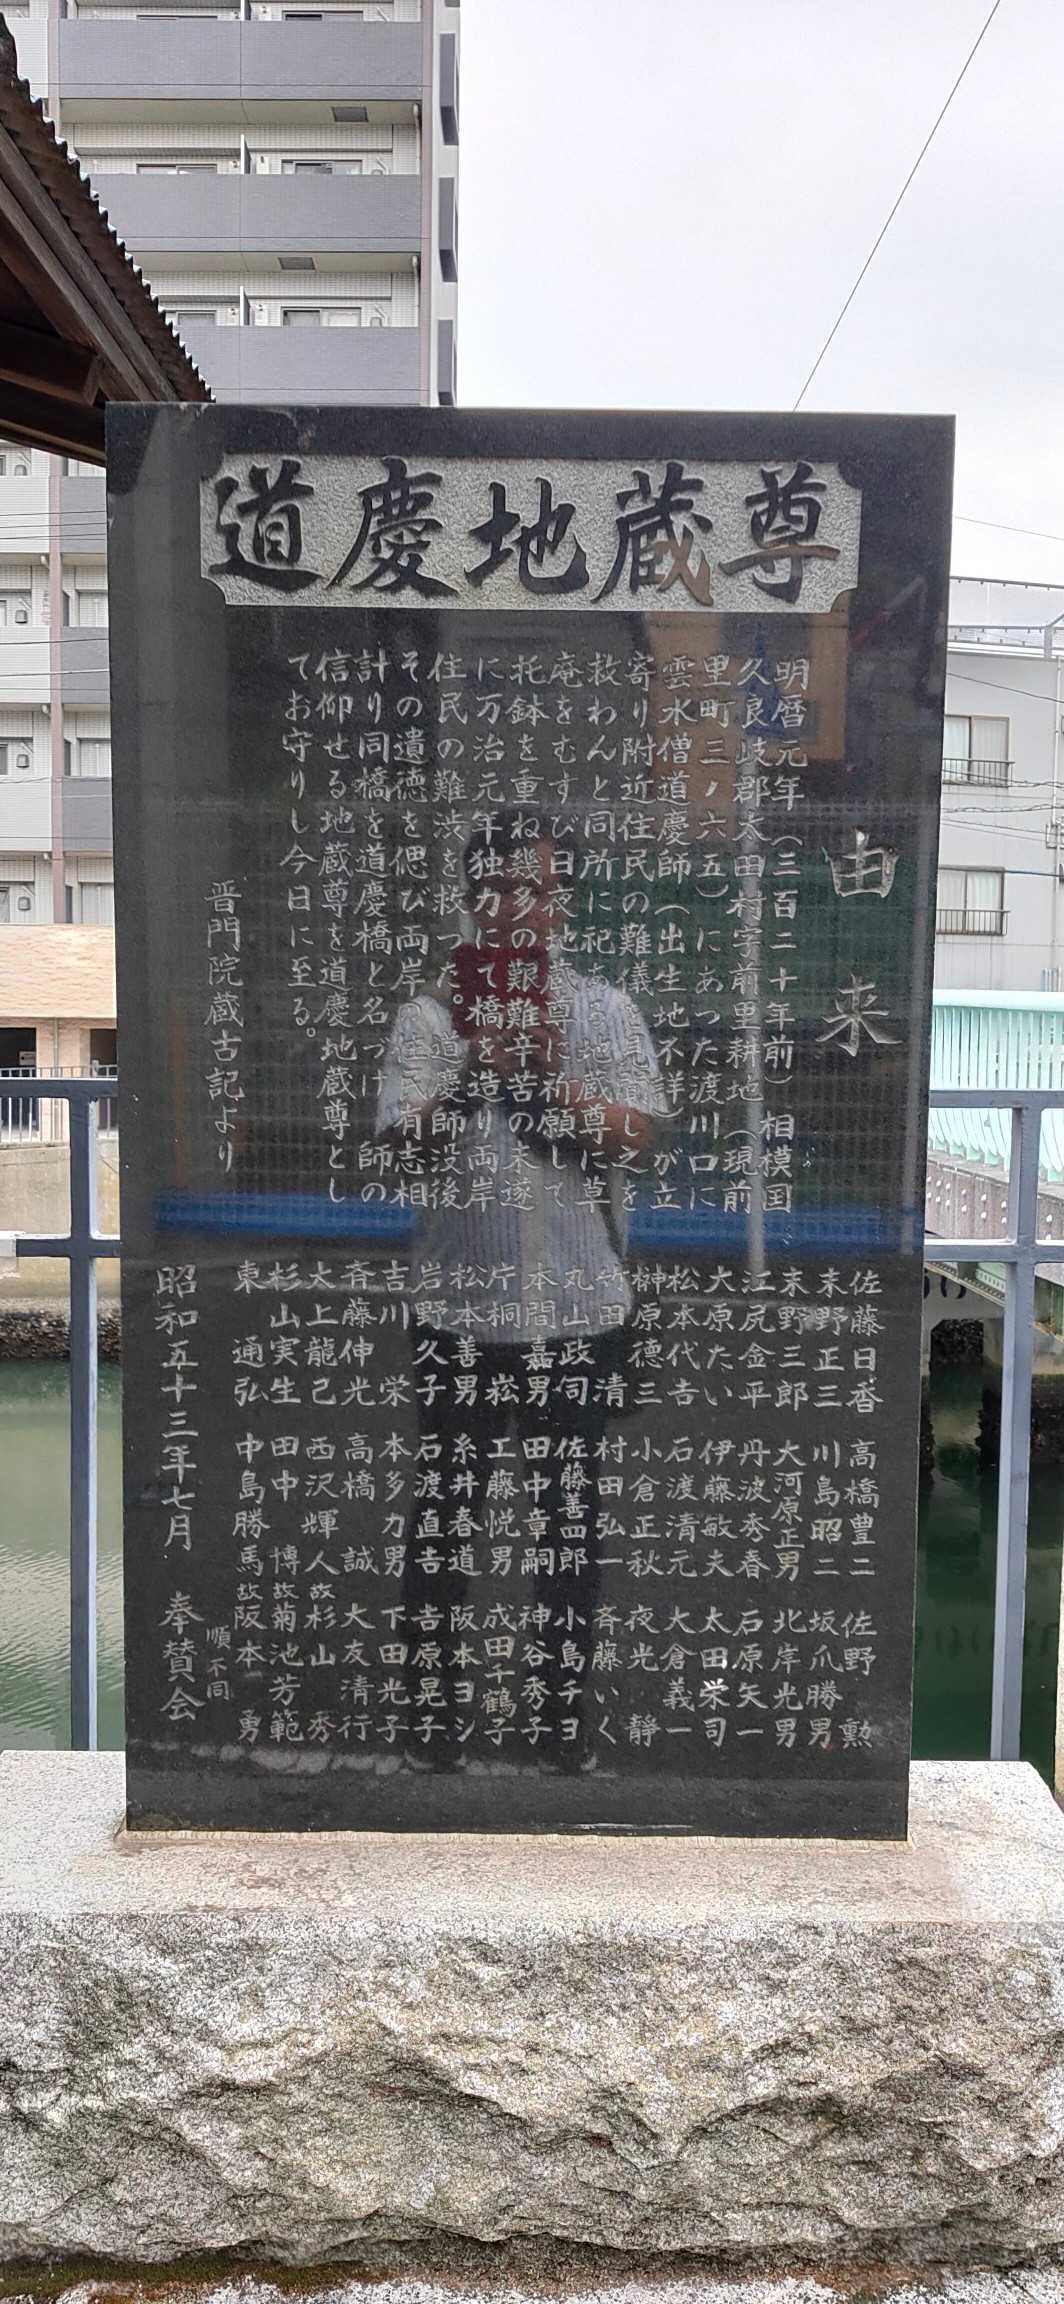 道慶地蔵尊
由来
明暦元年（三百二十年前）相模国
久良岐郡太田村字前里耕地（現前
里町三ノ六五）にあった渡川口に
雲水僧道慶師（出生地不詳）が立
寄り附近住民の難儀を見貭し之を
救わんと同所に祀ある地蔵尊に草
庵をむすび日夜地蔵尊に祈願して
托鉢を重ね幾多の艱難辛苦の末遂
に万治元年独力にて橋を造り両岸
住民の難渋を救つた。道慶師没後
その遺徳を偲び両岸の住民有志相
計り同橋を道慶橋と名づけ師の
信仰せる地蔵尊を道慶地蔵尊とし
てお守りし今日に至る。
普門院蔵古記より
佐藤日香 高橋豊二 佐野勲
末野正三 川島昭二 坂爪勝男
末野三郎 大河原正男 北岸光男
江尻金平 丹波秀春 石原矢一
大原たい 伊藤敏夫 太田栄司
松本代吉 石渡清元 大倉義一
榊原徳三 小倉正秋 夜光静
竹田清 村田弘一 斉藤いく
丸山政伺 佐藤善四郎 小島チヨ
本間嘉男 田中章嗣 神谷秀子
片桐崧 工藤悦男 成田千鶴子
松本善男 糸井春道 阪本ヨシ
岩野久子 石渡直吉 吉原晃子
吉川栄 本多力男 下田光子
斉藤伸光 高橋誠 大友清行
大上龍己 西沢輝人 故杉山秀
杉山実生 田中博 故菊池芳範
東通弘 中島勝馬 故阪本勇
順不同
昭和五十三年七月 奉賛会